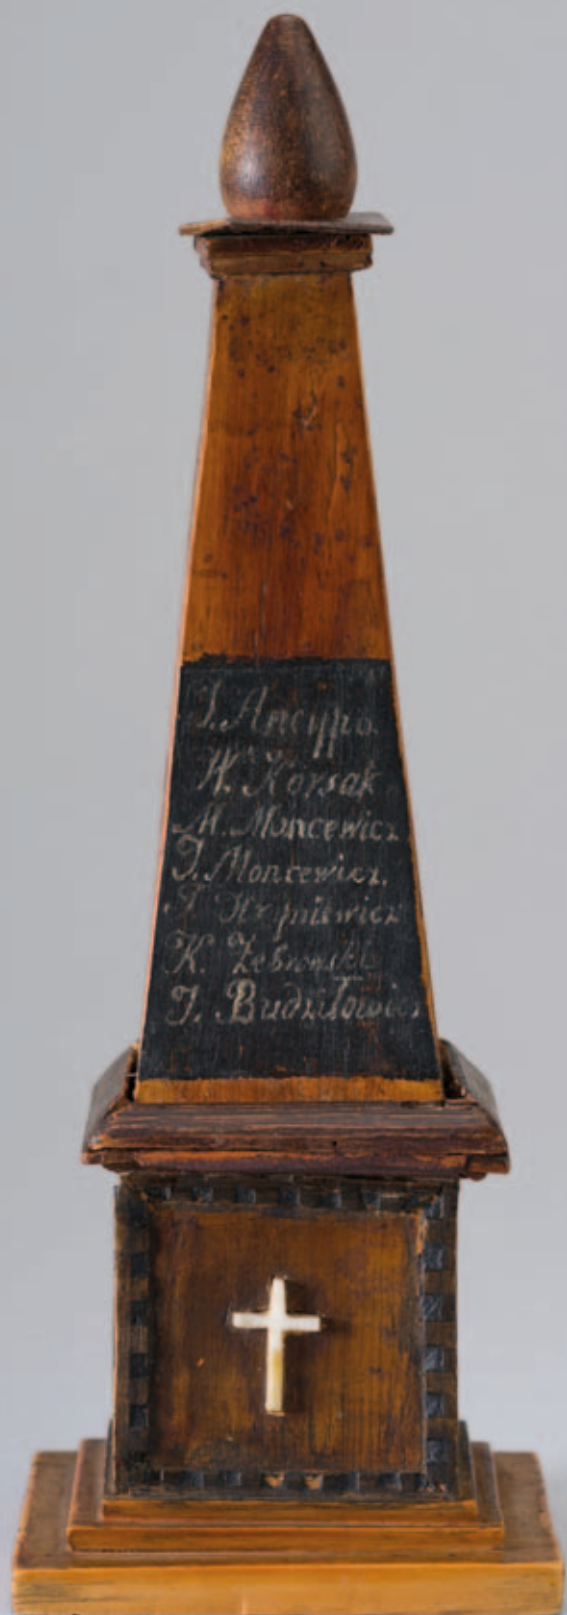 J. Ancyppo.
W. Korsak
M. Moncewicz
J. Moncewicz.
J. Hryniewicz
K. Żebrowski
J. Budziłowicz